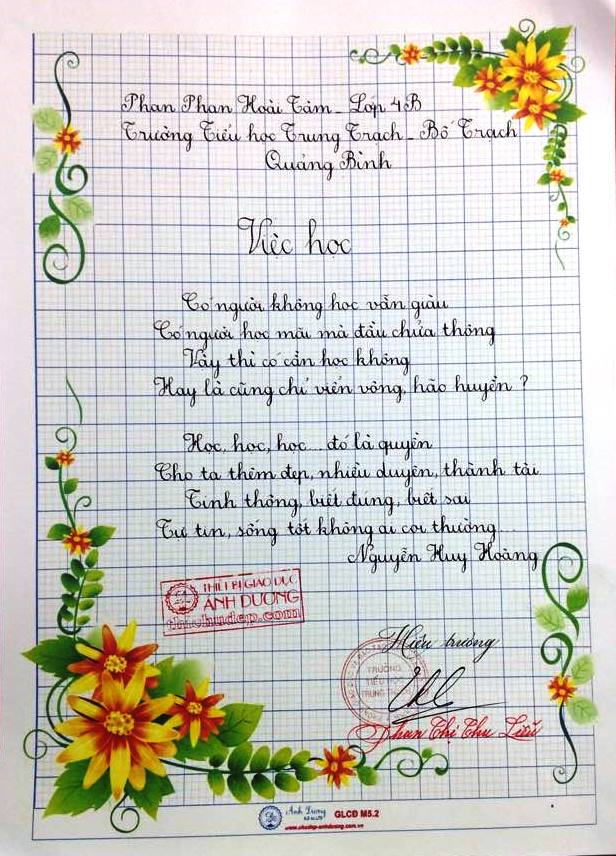 Phan Phan Hoài Tâm - Lớp 4B
Trường Tiểu học Trung Trạch - Bố Trạch
Quảng Bình
Việc học
Có người không học vẫn giàu
Có người học mãi mà đầu chửa thông
Vậy thì có cần học không
Hay là cũng chỉ viển vông, hão huyền ?
Học, học, học... đó là quyền
Cho ta thêm đẹp, nhiều duyên, thành tài
Tinh thông, biết đúng, biết sai
Tự tin, sống tốt không ai coi thường
Nguyễn Huy Hoàng
THIẾT BỊ GIÁO DỤC
ÁNH DƯƠNG
thuhudep.com
Hiệu trưởng
TRƯỜNG
TIỂU HỌC
TRUNG
Phan Thị Thu Liễu
Ánh Dương
GLCĐ M5.2
www.chudep-anhduong.com.vn